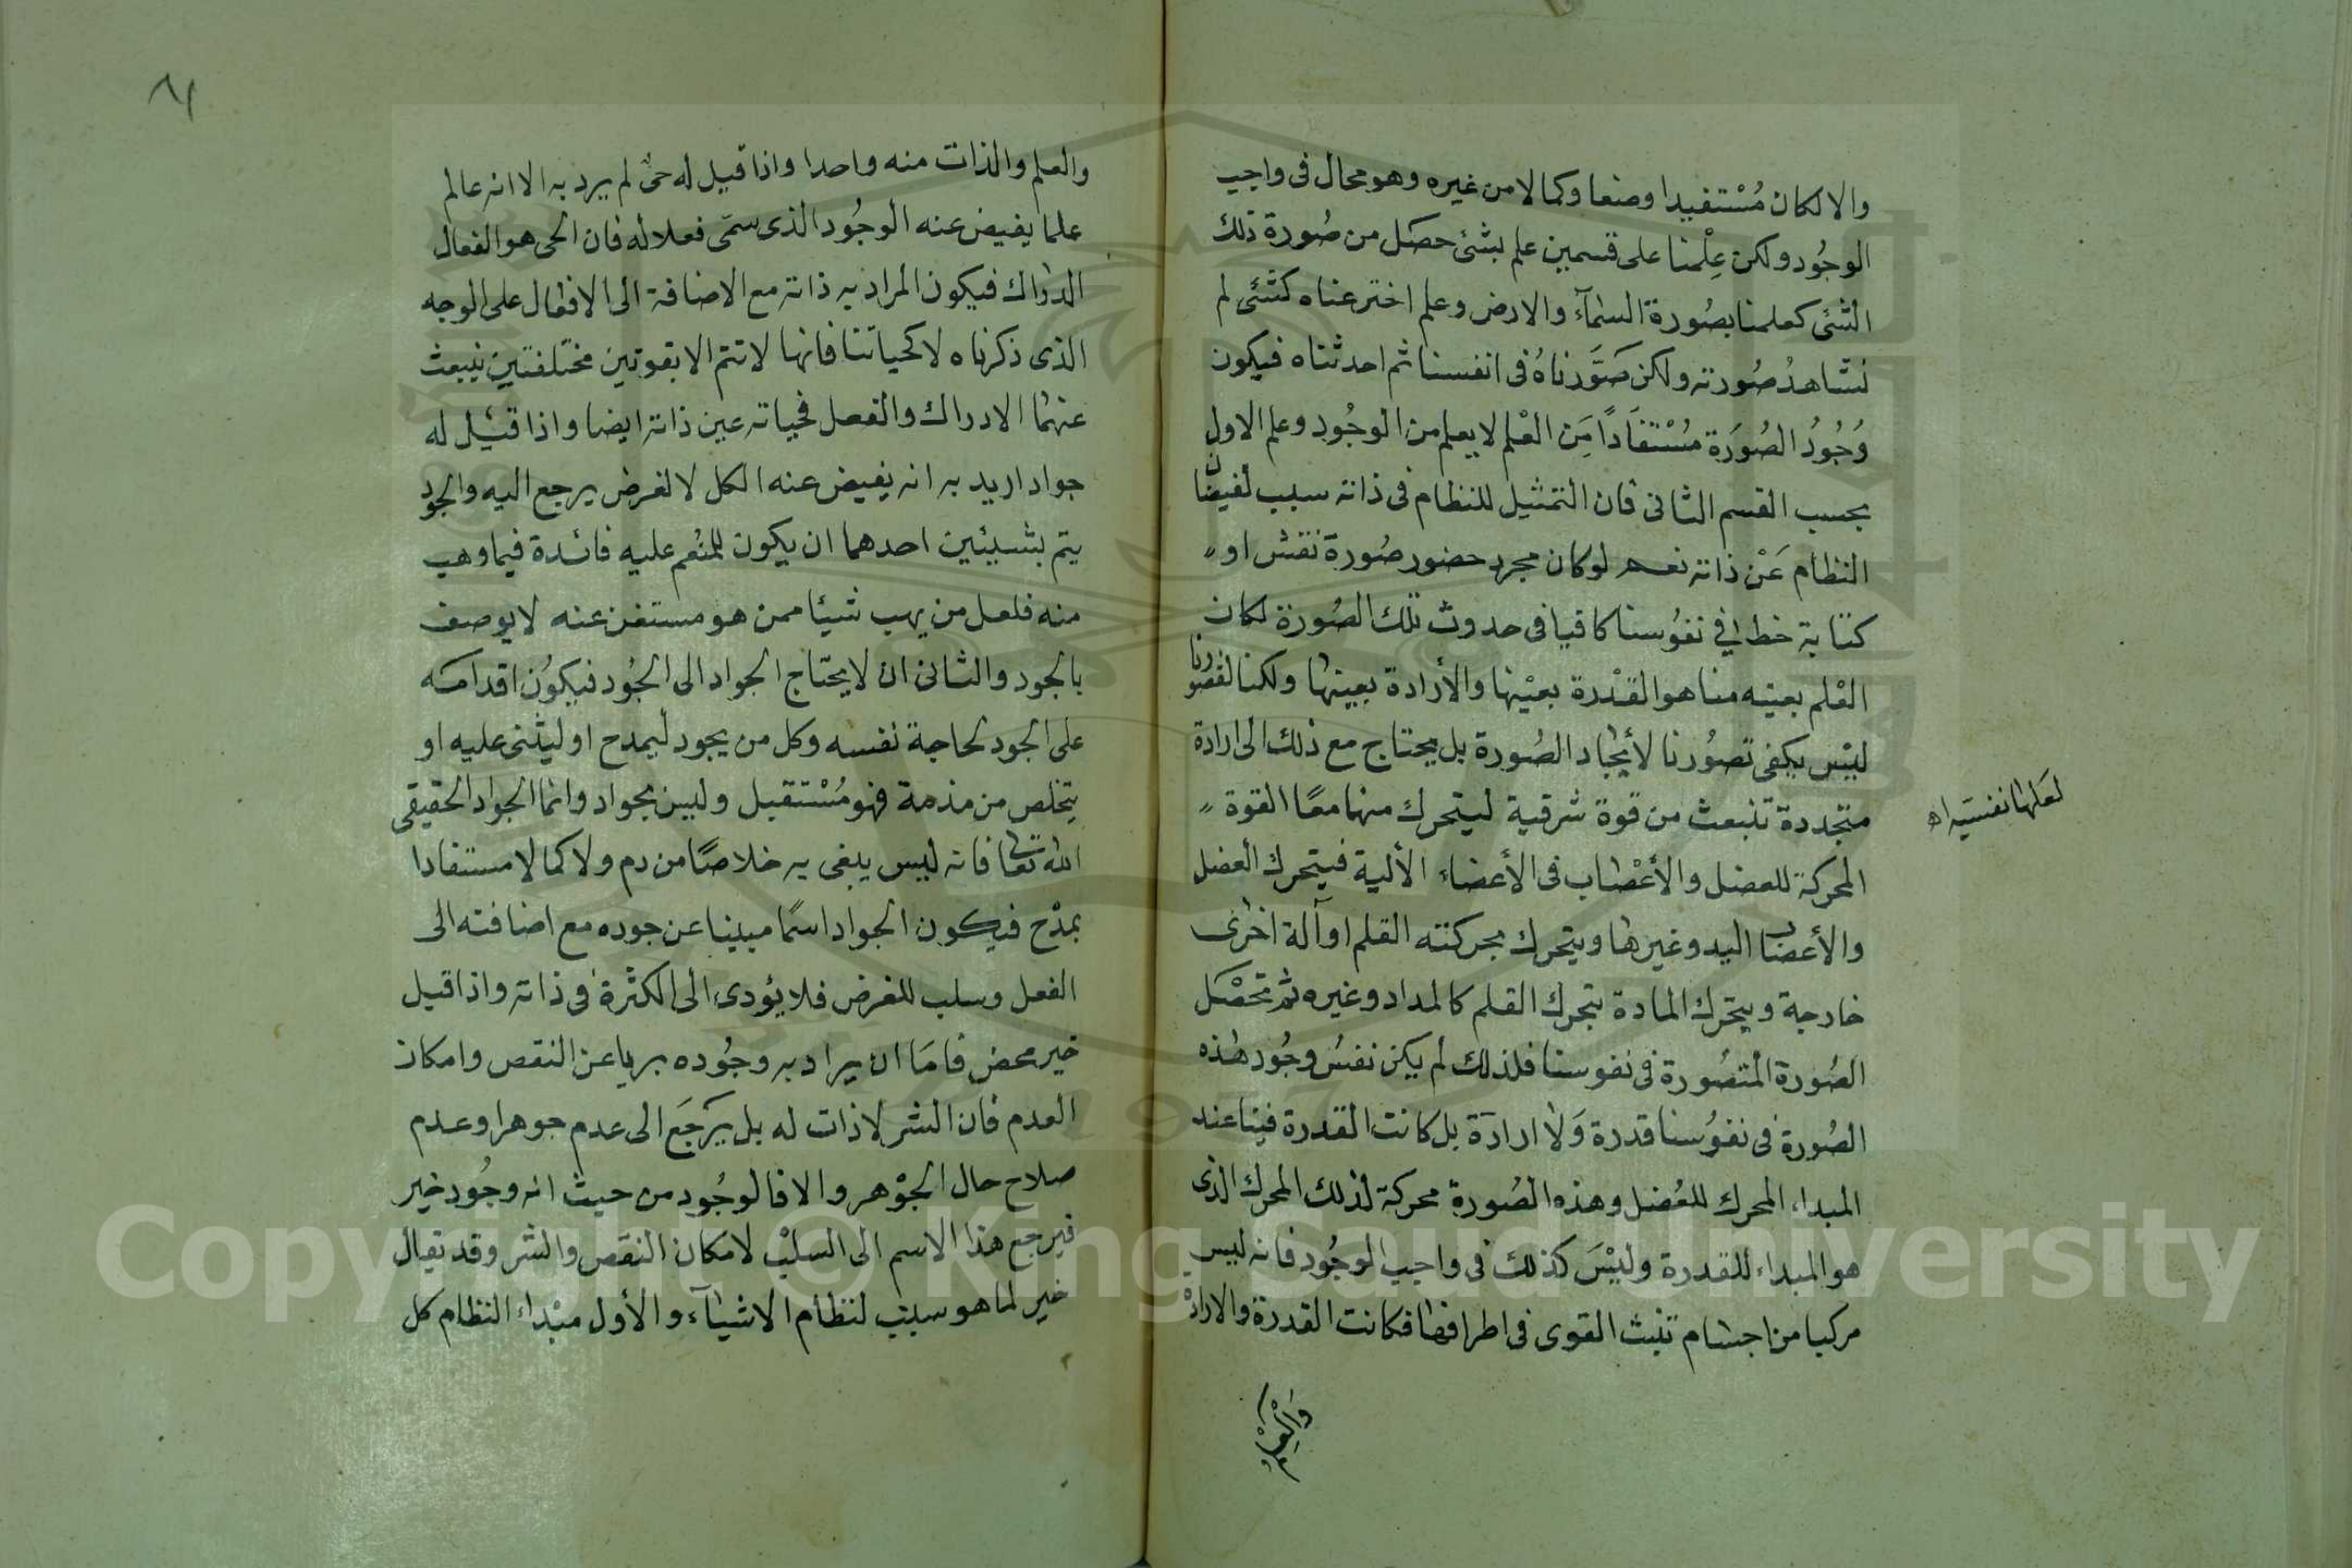 والا لكان مُسْتفيدا وصفا وكمالا من غيره وهو محال فى واجب
الوجُود ولكن عِلْمنا على قسمين علم بشئ حصَل من صُورة ذلك
الشئ كعلمنا بصُورة السَّمآء والارض وعلم اخترعناه كشئ لم
نشاهدُ صُورته ولكن صَوَّرناهُ فى انفسنا ثم احدثناه فيكون
وُجُودُ الصُورَة مُسْتفَاداً مَن العْلم لا بعلم من الوجُود وعلم الاول
بحسب القسم الثانى فان التمثيل للنظام فى ذاته سبب لفيضان
النظام عَنْ ذاته نعم لو كان مجرد حضور صُورة نقش او
كتابة خط في نفوُسنا كافيا فى حدوث تلك الصُورة لكان
العْلم بعينه منا هو القدْرة بعيْنها والأرادة بعينها ولكنا لقصورنا
ليْس يكفى تصوُرنا لأيجاد الصُورة بل يحتاج مع ذلك الى ارادة
متجددة تنبعث من قوة شرقية ليتحرك منها معًا القوة
المحركة للعضل والأعْصاب فى الأعضاء الألية فيتحرك العضل
والأعضاب اليد وغيرها ويتحرك بحركته القلم او آلة اخرى
خارجة ويتحرك المادة بتحرك القلم كالمداد وغيره ثم تحْصَل
الصُورة المتصُورة فى نفوسنا فلذلك لم يكن نفسُ وجُود هذه
الصُورة فى نفوُسنا قدرة وَلا ارادة بل كانت القدرة فينا عند
المبداء المحرك للعُضل وهذه الصُورة محركة لذلك المحرك الذى
هو المبداء للقدرة وليْسَ كذلك فى واجب الوجُود فانه ليس
مركبا من اجسام تنبث القوى فى اطرافها فكانت القدرة والارادة
والعلم
لعلها نفسية اه
٨١
والعلم والذات منه واحدا واذا قيل له حىٌ لم يرد به الا انه عالم
علما يفيض عنه الوجُود الذى سمّى فعلا له فان الحى هو الفعال
الدراك فيكون المراد به ذاته مع الاضافة الى الافعال على الوجه
الذى ذكرناه لا كحياتنا فانها لا تتم الا بقوتين مختلفتين ينبعث
عنهما الادراك والفعل فحياته عين ذاته ايضا واذا قيل له
جواد اريد به انه يفيض عنه الكل لا لغرض يرجع اليه والجود
يتم بشيئين احدهما ان يكون للمنْعم عليه فائدة فيما وهب
منه فلعل من يهب شيئا ممن هو مستغن عنه لا يوصف
بالجود والثانى ان لا يحتاج الجواد الى الجُود فيكوُن اقدامه
على الجود لحاجة نفسه وكل من يجود ليمدح او ليثنى عليه او
يتخلص من مذمة فهو مُسْتقيل وليس بجواد وانما الجواد الحقيقى
الله تعالى فانه ليس يبغى به خلاصًا من دم ولا كمالا مستفادا
بمدْح فيكون الجواد اسمًا مبينا عن جوده مع اضافته الى
الفعل وسلب للغرض فلا يؤدى الى الكثرة فى ذاته واذا قيل
خير محض فامَا ان يراد به وجُوده بريا عن النقص وامكان
العدم فان الشر لا ذات له بل يَرجَع الى عدم جوهر او عدم
صلاح حال الجوْهر والا فالوجُود من حيث انه وجُود خير
فيرجع هذا الاسم الى السلبْ لامكان النقص والشر وقد يقال
خير لما هو سبب لنظام الاشيآء والأول مبْداء النظام كل
Copyright © King Saud University